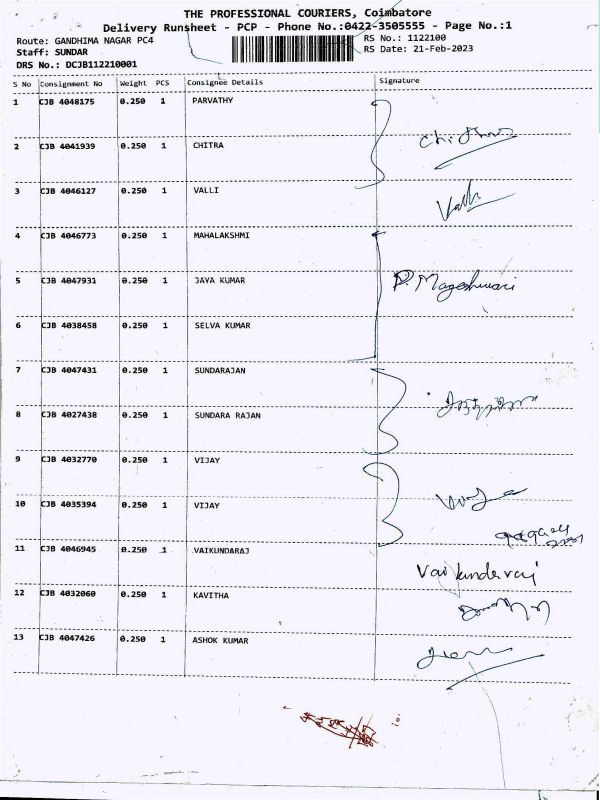 THE PROFESSIONAL COURIERS, Coimbatore
Delivery Runsheet - PCP - Phone No.:0422-3505555 - Page No.:1
Route: GANDHIMA NAGAR PC4
RS No.: 1122100
Staff: SUNDAR
RS Date: 21-Feb-2023
DRS No.: DCJB112210001
S No Consignment No Weight PCS Consignee Details Signature
1 CJB 4048175 0.250 1 PARVATHY
2 CJB 4041939 0.250 1 CHITRA
3 CJB 4046127 0.250 1 VALLI
Valli
4 CJB 4046773 0.250 1 MAHALAKSHMI
5 CJB 4047931 0.250 1 JAYA KUMAR P. Mageshwari
6 CJB 4038458 0.250 1 SELVA KUMAR
7 CJB 4047431 0.250 1 SUNDARAJAN
8 CJB 4027438 0.250 1 SUNDARA RAJAN
9 CJB 4032770 0.250 1 VIJAY
10 CJB 4035394 0.250 1 VIJAY
11 CJB 4046945 0.250 1 VAIKUNDARAJ
Vaikundaraj
12 CJB 4032060 0.250 1 KAVITHA
13 CJB 4047426 0.250 1 ASHOK KUMAR